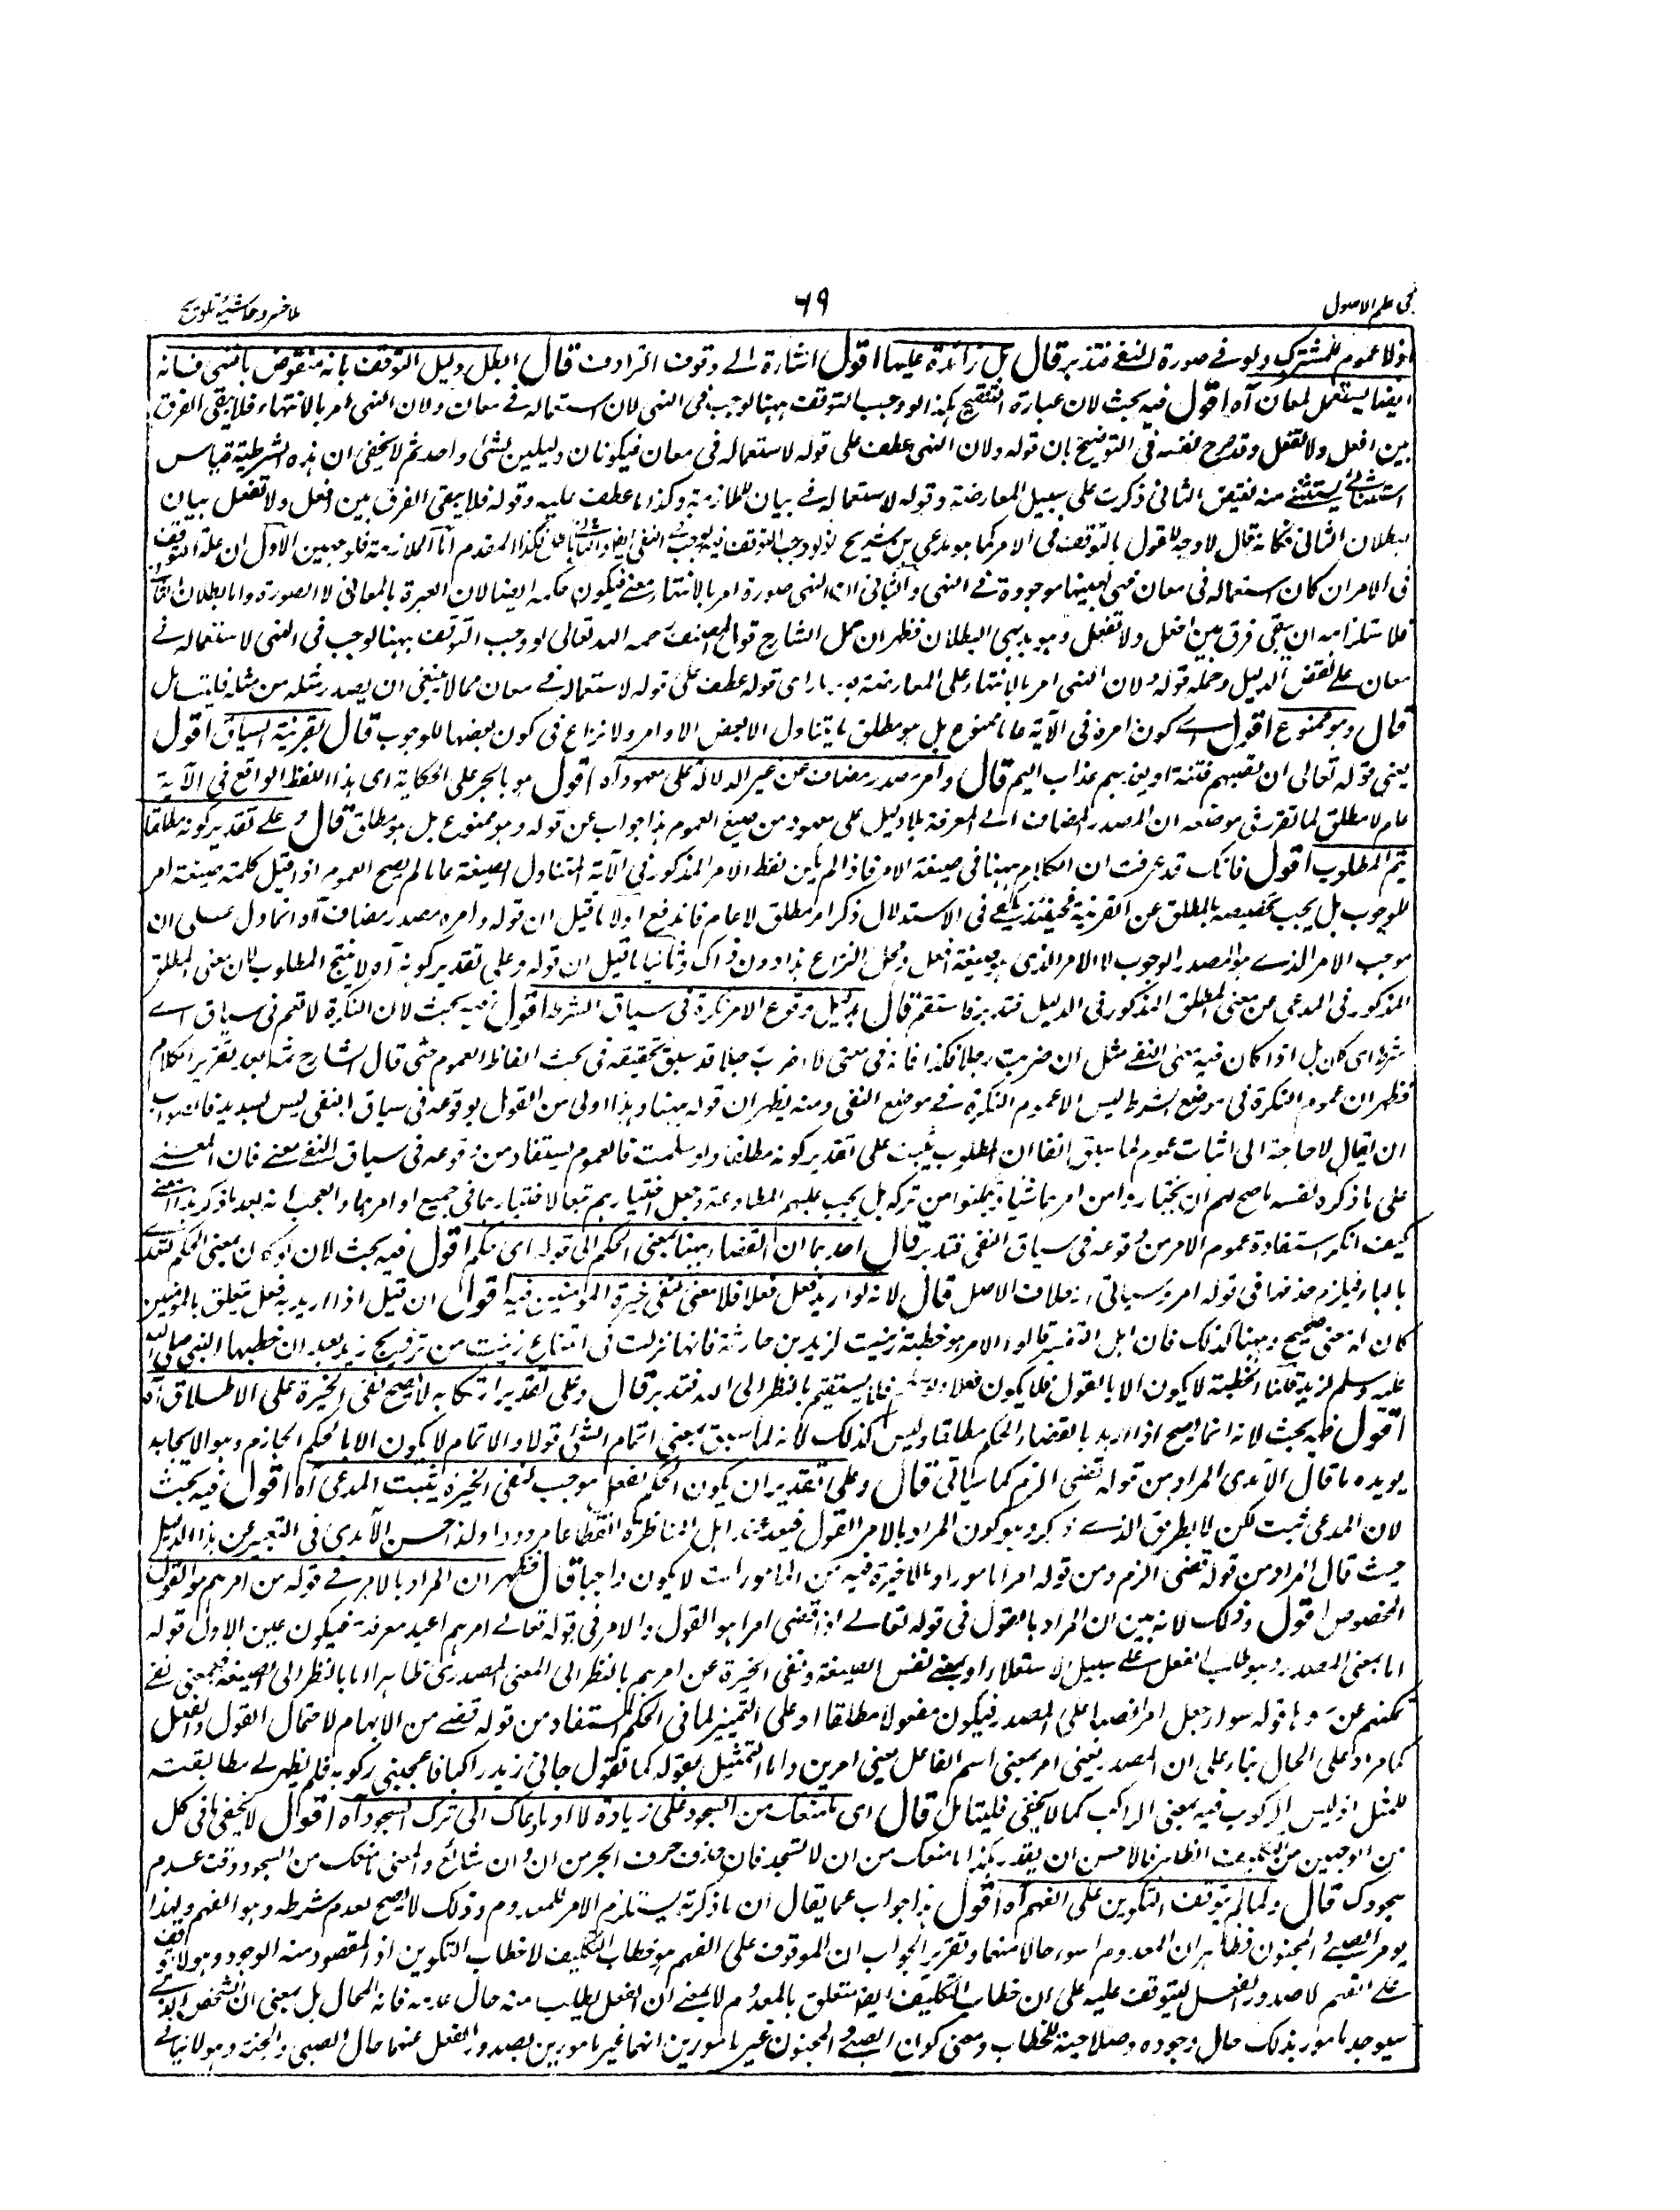 فى علم الاصول
٦٩
ملا خسرو حاشية تلويح
اذ لا عموم للمشترك ولو فى صورة النفى فتدبر قال بل زائدة عليها اقول اشارة الى وقوف الترادف قال ابطل دليل التوقف بانه منقوض بالنهى فانه
ايضا يستعمل لمعان آه اقول فيه بحث لان عبارة التنقيح هكذا لو وجب التوقف ههنا لوجب فى النهى لان استعماله فى معان ولان النهى امر بالانتهاء فلا يبقى الفرق
بين افعل ولا تفعل وقد صرح نفسه فى التوضيح بان قوله ولان النهى عطف على قوله لاستعماله فى معان فيكونان دليلين لشئ واحد ثم لا يخفى ان هذه الشرطية قياس
استثنائى يستثنى منه نقيض الثانى ذكرت على سبيل المعارضة وقوله لاستعماله فى بيان للملازمة وكذا ما عطف عليه وقوله فلا يبقى الفرق بين افعل ولا تفعل بيان
لبطلان الثانى فكانه قال لا وجه للقول بالتوقف فى الامر كما هو مدعى بن شريح لو وجب التوقف فيه لوجب النهى ايضا والثانى باطل فكذا المقدم اما الملازمة فلوجهين الاول ان علة التوقف
فى الامر ان كان استعماله فى معان فهى بعينها موجودة فى النهى والثانى ان النهى صورة امر بالانتهاء معنى فيكون حكمه ايضا لان العبرة بالمعانى لا الصورة واما بطلان الثانى
فلاستلزامه ان يبقى فرق بين افعل ولا تفعل وهو بديهى البطلان فظهر ان حمل الشارح قوله المصنف رحمه الله تعالى لو وجب التوقف ههنا لوجب فى النهى لاستعماله فى
معان على نقض الدليل وحمله قوله ولان النهى امر بالانتهاء على المعارضة بعد ما راى قوله عطف على قوله لاستعماله فى معان مما لا ينبغى ان يصدر مثله من مثله فليتامل
قال وهو ممنوع اقول اى كون امره فى الآية عاما ممنوع بل هو مطلق لا يتناول الا بعض الاوامر ولا نزاع فى كون بعضها للوجوب قال بقرينة السياق اقول
يعنى قوله تعالى ان تصيبهم فتنة او يصيبهم عذاب اليم قال وامره مصدر مضاف من غير الدلالة على معهود آه اقول هو بالجر على الحكاية اى هذا اللفظ الواقع فى الآية
عام لا مطلق لما تقرر فى موضعه ان المصدر المضاف الى المعرفة بلا دليل على معهود من صيغ العموم هذا جواب عن قوله وهو ممنوع بل هو مطلق قال وعلى تقدير كونه مطلقا
يتم المطلوب اقول فانك قد عرفت ان الكلام ههنا فى صيغة الامر فاذا لم يكن لفظ الامر المذكور فى الآية المتناول الصيغة عاما لم يصح العموم اذا قيل كلمة صيغة امر
للوجوب بل يجب تخصيصه بالمطلق عن القرينة فحينئذ يكفى فى الاستدلال ذكر امر مطلق لا عام فاندفع اولا ما قيل ان قوله وامره مصدر مضاف آه انما دل على ان
موجب الامر الذى هو المصدر الوجوب لا الامر الذى هو صيغة افعل ومحل النزاع هذا دون ذاك وثانيا ما قيل ان قوله وعلى تقدير كونه آه لا ينتج المطلوب لان معنى المطلق
المذكور فى المدعى من معنى المطلق المذكور فى الدليل فتدبر فاستقم قال بدليل وقوع الامر نكرة فى سياق الشرط اقول فيه بحث لان النكرة لا تعم فى سياق اى
شرط اى كان بل اذا كان فيه معنى النفى مثل ان ضربت رجلا فكذا فانه فى معنى لا اضرب رجلا قد سبق تحقيقه فى بحث الفاظ العموم حتى قال الشارح ثمه بعد تقرير الكلام
فظهر ان عموم النكرة فى موضع الشرط ليس الا عموم النكرة فى موضع النفى ومنه يظهر ان قوله ههنا وهذا اولى من القول بوقوعه فى سياق النفى ليس بسديد فالصواب
ان يقال لا حاجة الى اثبات عموم لما سبق آنفا ان المطلوب يثبت على تقدير كونه مطلقا ولو سلمت فالعموم يستفاد من وقوعه فى سياق النفى معنى فان المعنى
على ما ذكره نفسه ما صح لهم ان يختاروا من امرهما شيئا ويتمكنوا من تركه بل يجب عليهم المطاوعة وجعل اختيارهم تبعا لاختيارهما فى جميع اوامرهما والعجب انه بعد ما ذكر هذا المعنى
كيف انكر استفادة عموم الامر من وقوعه فى سياق النفى فتدبر قال احدهما ان القضاء ههنا بمعنى الحكم الى قوله اى حكم اقول فيه بحث لان لو كان معنى الحكم لتعدى
بالباء فيلزم حذفها فى قوله امرا وسياتى انه خلاف الاصل قال لانه لو اريد فعل فعلا فلا معنى لنفى خيرة المؤمنين فيه اقول ان قيل اذا اريد به فعل متعلق بالمؤمنين
كان له معنى صحيح وههنا كذلك فان اهل التفسير قالوا الامر هو خطبة زينب لزيد بن حارثة فانها نزلت فى امتناع زينب من تزويج زيد بعد ان خطبها النبى صلى الله
عليه وسلم لزيد قلنا الخطبة لا يكون الا بالقول فلا يكون فعلا فلا يستقيم بالنظر الى الله فتدبر قال وعلى تقدير ارتكابه لا يصح نفى الخيرة على الاطلاق آه
اقول فيه بحث لانه انما يصح اذا اريد بالقضاء الحكم مطلقا وليس كذلك لانه لما سبق بمعنى اتمام الشئ قولا والاتمام لا يكون الا بالحكم الجازم وهو الايجاب
يويده ما قال الآمدى المراد من قوله قضى الزم كما سياتى قال وعلى تقدير ان يكون الحكم بفعل موجب لنفى الخيرة يثبت المدعى آه اقول فيه بحث
لان المدعى ثبت لكن لا بطريق الذى ذكر وهو كون المراد بالامر القول فيعد عند اهل المناظرة انقطاعا مردودا ولذا حسن الآمدى فى التعبير عن هذا الدليل
حيث قال المراد من قوله قضى الزم ومن قوله امرا مامورا وما لا خيرة فيه من المامورات لا يكون الا واجبا قال فظهر ان المراد بالامر فى قوله من امرهم هو القول
المخصوص اقول وذلك لانه بين ان المراد بالقول فى قوله تعالى اذا قضى امرا هو القول والامر فى قوله تعالى امرهم اعيد معرفة فيكون عين الاول قوله
اما بمعنى المصدر وهو طلب الفعل على سبيل الاستعلاء او بمعنى نفس الصيغة ونفى الخيرة عن امرهم بالنظر الى المعنى المصدرى ظاهر واما بالنظر الى الصيغة فبمعنى نفى
تمكنهم عن قوله سواء جعل امرا نصبا على المصدر فيكون مفعولا مطلقا او على التمييز لما فى الحكم المستفاد من قوله قضى من الابهام لاحتمال القول والفعل
كما مر او على الحال بناء على ان المصدر يعنى امر بمعنى اسم الفاعل يعنى امرين واما التمثيل بقوله كما تقول جاءنى زيد راكبا فاعجبنى ركوبه فلم يظهر لى مطابقته
للمثل اذ ليس الركوب فيه بمعنى الراكب كما لا يخفى فليتامل قال اى ما منعك من السجود على زيادة لا او ما دعاك الى ترك السجود آه اقول لا يخفى ما فى كل
من الوجهين من التكلف الظاهر فالاحسن ان يقدر هكذا ما منعك من ان لا تسجد فان حذف حرف الجر من ان وان شائع والمعنى ما منعك من السجود وقت عدم
سجودك قال ولما لم يتوقف التكوين على الفهم آه اقول هذا جواب عما يقال ان ما ذكرته يستلزم الامر للمعدوم وذلك لا يصح لعدم شرطه وهو الفهم ولهذا
يومر الصبى والمجنون فظاهر ان المعدوم اسوء حالا منهما وتقرير الجواب ان الموقوف على الفهم هو خطاب التكليف لا خطاب التكوين اذ المقصود منه الوجود وهو لا يتوقف
على الفهم لا صدور الفعل ليتوقف عليه على ان خطاب التكليف ايضا متعلق بالمعدوم لا بمعنى ان الفعل يطلب منه حال عدمه فانه المحال بل بمعنى ان الشخص الذى
سيوجد مامور بذلك حال وجوده وصلاحيته للخطاب ومعنى كون الصبى والمجنون غير مامورين انهما غير مامورين بصدور الفعل عنهما حال الصبى والجنة وهو لا ينافى